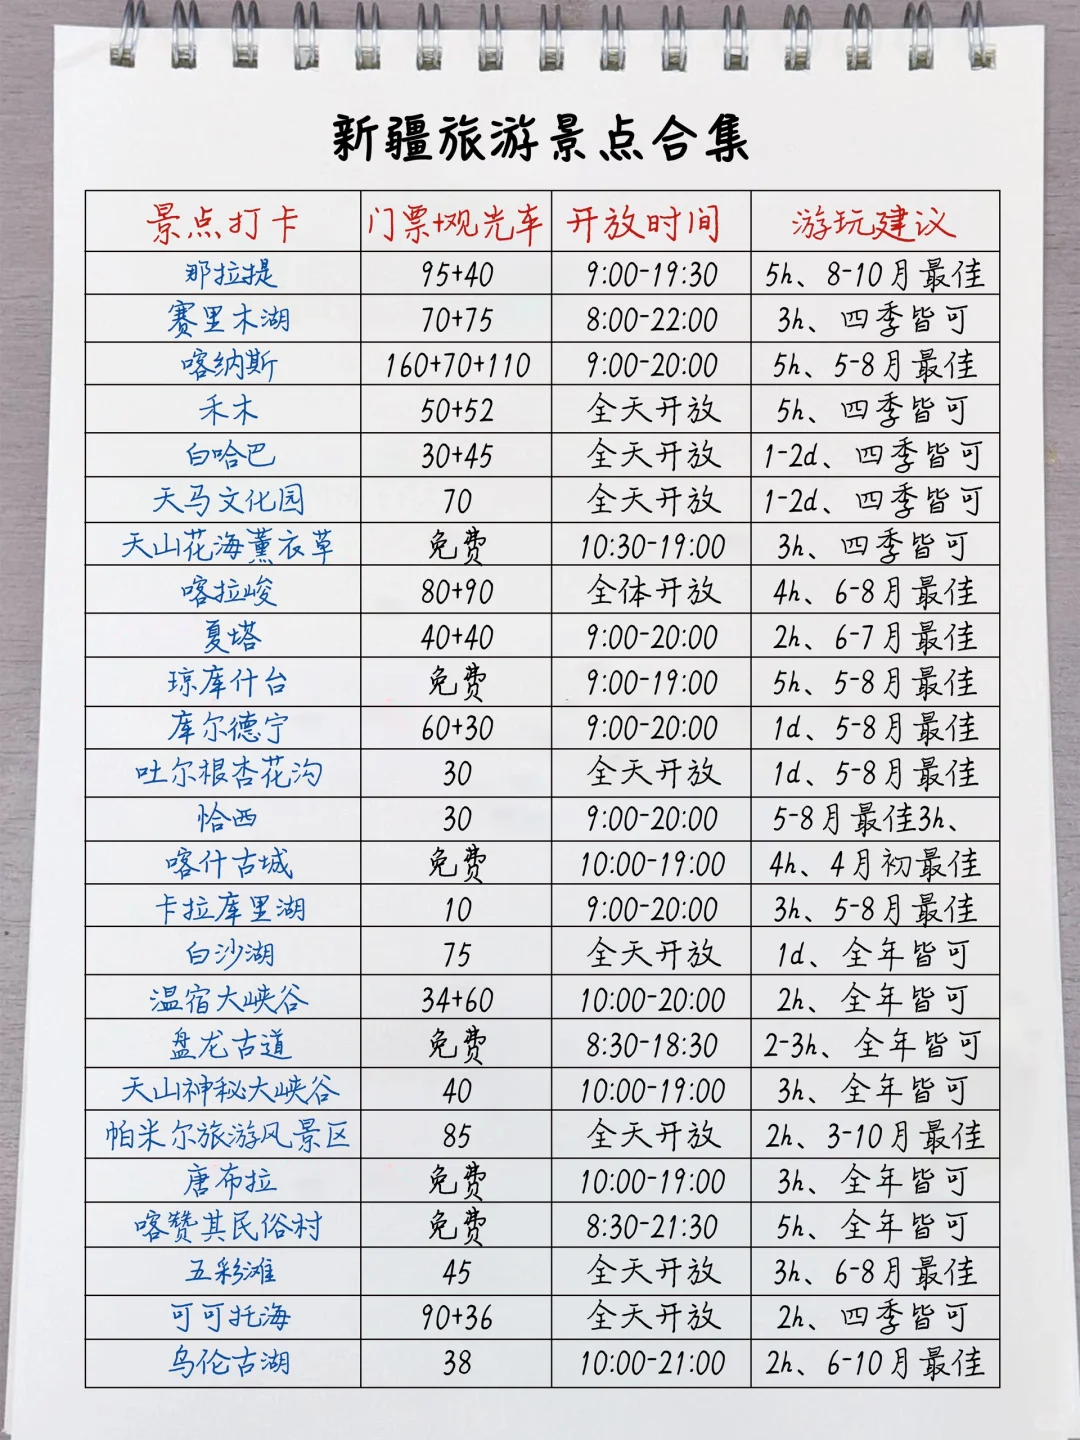 新疆旅游景点合集
景点打卡 门票+观光车 开放时间 游玩建议
那拉提 95+40 9:00-19:30 5h、8-10月最佳
赛里木湖 70+75 8:00-22:00 3h、四季皆可
喀纳斯 160+70+110 9:00-20:00 5h、5-8月最佳
禾木 50+52 全天开放 5h、四季皆可
白哈巴 30+45 全天开放 1-2d、四季皆可
天马文化园 70 全天开放 1-2d、四季皆可
天山花海薰衣草 免费 10:30-19:00 3h、四季皆可
喀拉峻 80+90 全体开放 4h、6-8月最佳
夏塔 40+40 9:00-20:00 2h、6-7月最佳
琼库什台 免费 9:00-19:00 5h、5-8月最佳
库尔德宁 60+30 9:00-20:00 1d、5-8月最佳
吐尔根杏花沟 30 全天开放 1d、5-8月最佳
恰西 30 9:00-20:00 5-8月最佳3h、
喀什古城 免费 10:00-19:00 4h、4月初最佳
卡拉库里湖 10 9:00-20:00 3h、5-8月最佳
白沙湖 75 全天开放 1d、全年皆可
温宿大峡谷 34+60 10:00-20:00 2h、全年皆可
盘龙古道 免费 8:30-18:30 2-3h、全年皆可
天山神秘大峡谷 40 10:00-19:00 3h、全年皆可
帕米尔旅游风景区 85 全天开放 2h、3-10月最佳
唐布拉 免费 10:00-19:00 3h、全年皆可
喀赞其民俗村 免费 8:30-21:30 5h、全年皆可
五彩滩 45 全天开放 3h、6-8月最佳
可可托海 90+36 全天开放 2h、四季皆可
乌伦古湖 38 10:00-21:00 2h、6-10月最佳